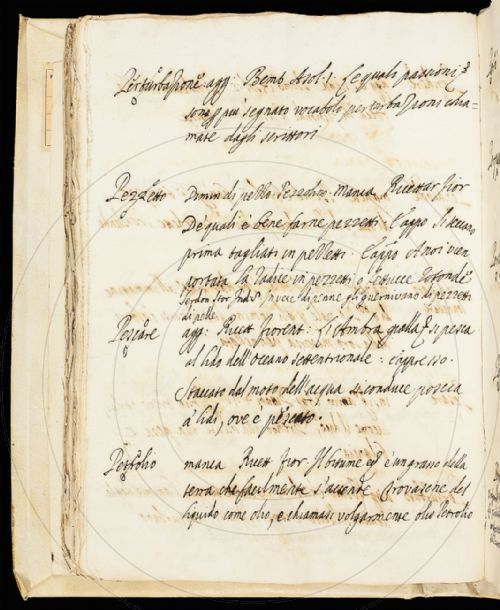 Perturbazione. agg: Bemb. Asol. 1. Le quali passioni
sono più segnato vocabolo perturbazioni chia=
mate dagli scrittori
Pezzetto Dimin. di pezzo. manca. Ricettar fior
De quali è bene farne pezzetti. E appo
prima tagliati in pezzetti. E appo A noi vien
portata la radice in pezzetti o fettucce rotonde
di pezzetti
di pelle
Pescare agg: Ricett fiorent. L'Ambra gialla si pesca
al lido dell'oceano settentrionale: e appresso.
Staccato dal moto dell'acqua si conduce poscia
a' lidi, ove è pescato.
Petrolio manca Ricett fior Il bitume è un grasso della
terra che facilmente s'accende trovasene del
liquido come olio, e chiamasi volgarmente olio Petrolio